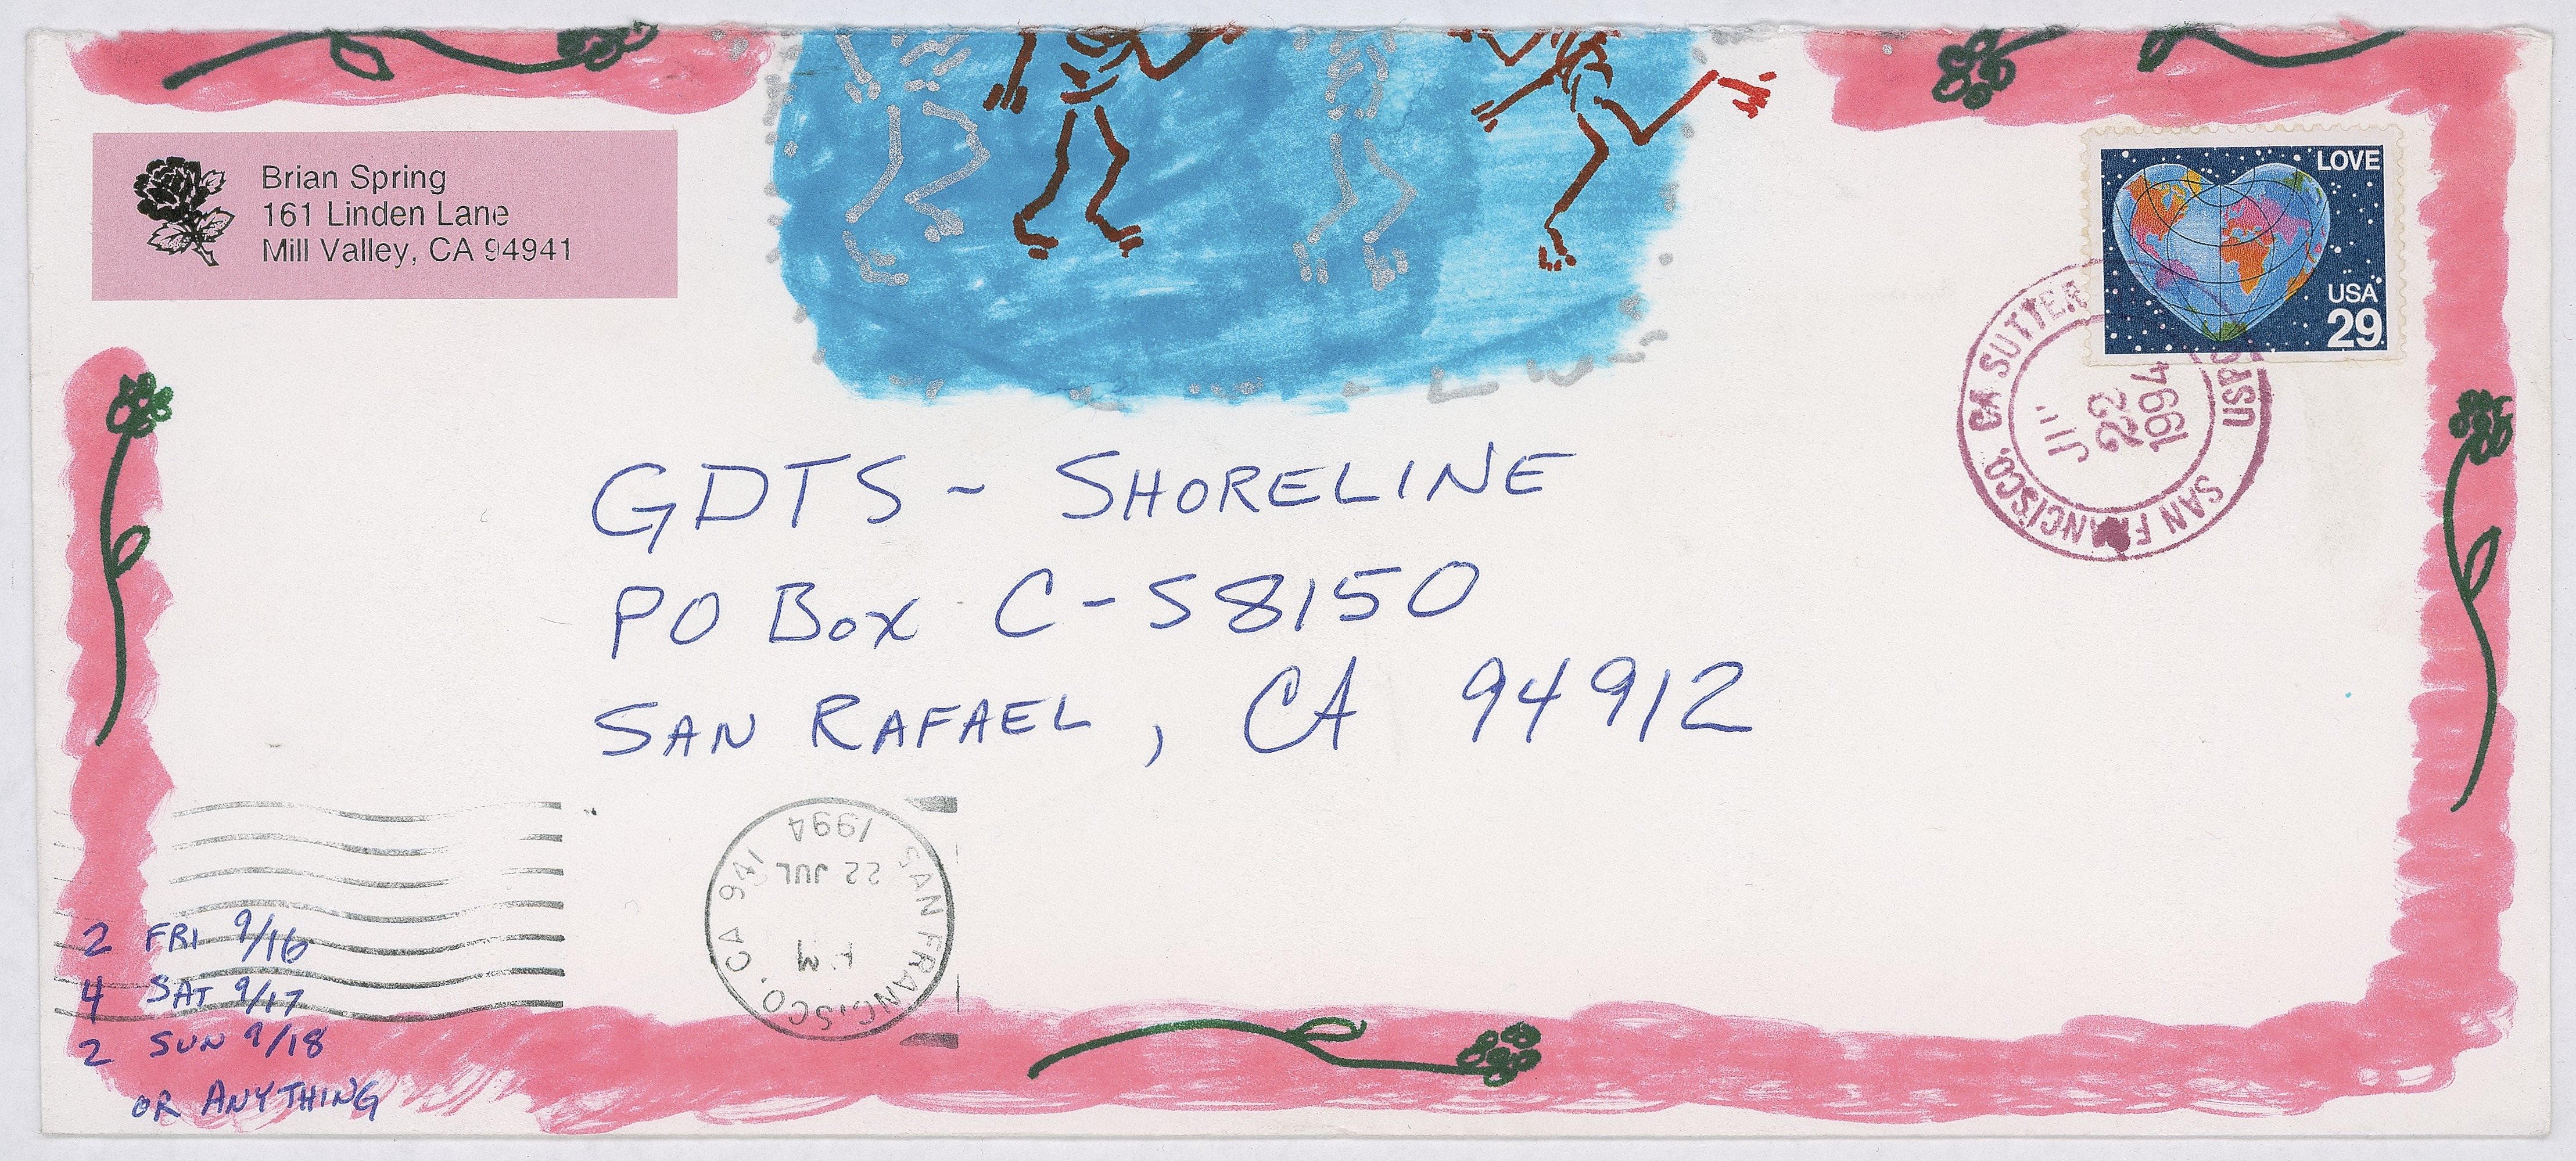 Brian Spring
161 Linden Lane
Mill Valley, CA 94941
LOVE
USA
29
SAN FRANCISCO, CA SUTTER
USPS
JUL
22
1994
GDTS ~ SHORELINE
PO Box C-58150
SAN RAFAEL, CA 94912
SAN FRANCISCO, CA 941
PM
22 JUL
1994
2 FRI 9/16
4 SAT 9/17
2 SUN 9/18
OR ANYTHING